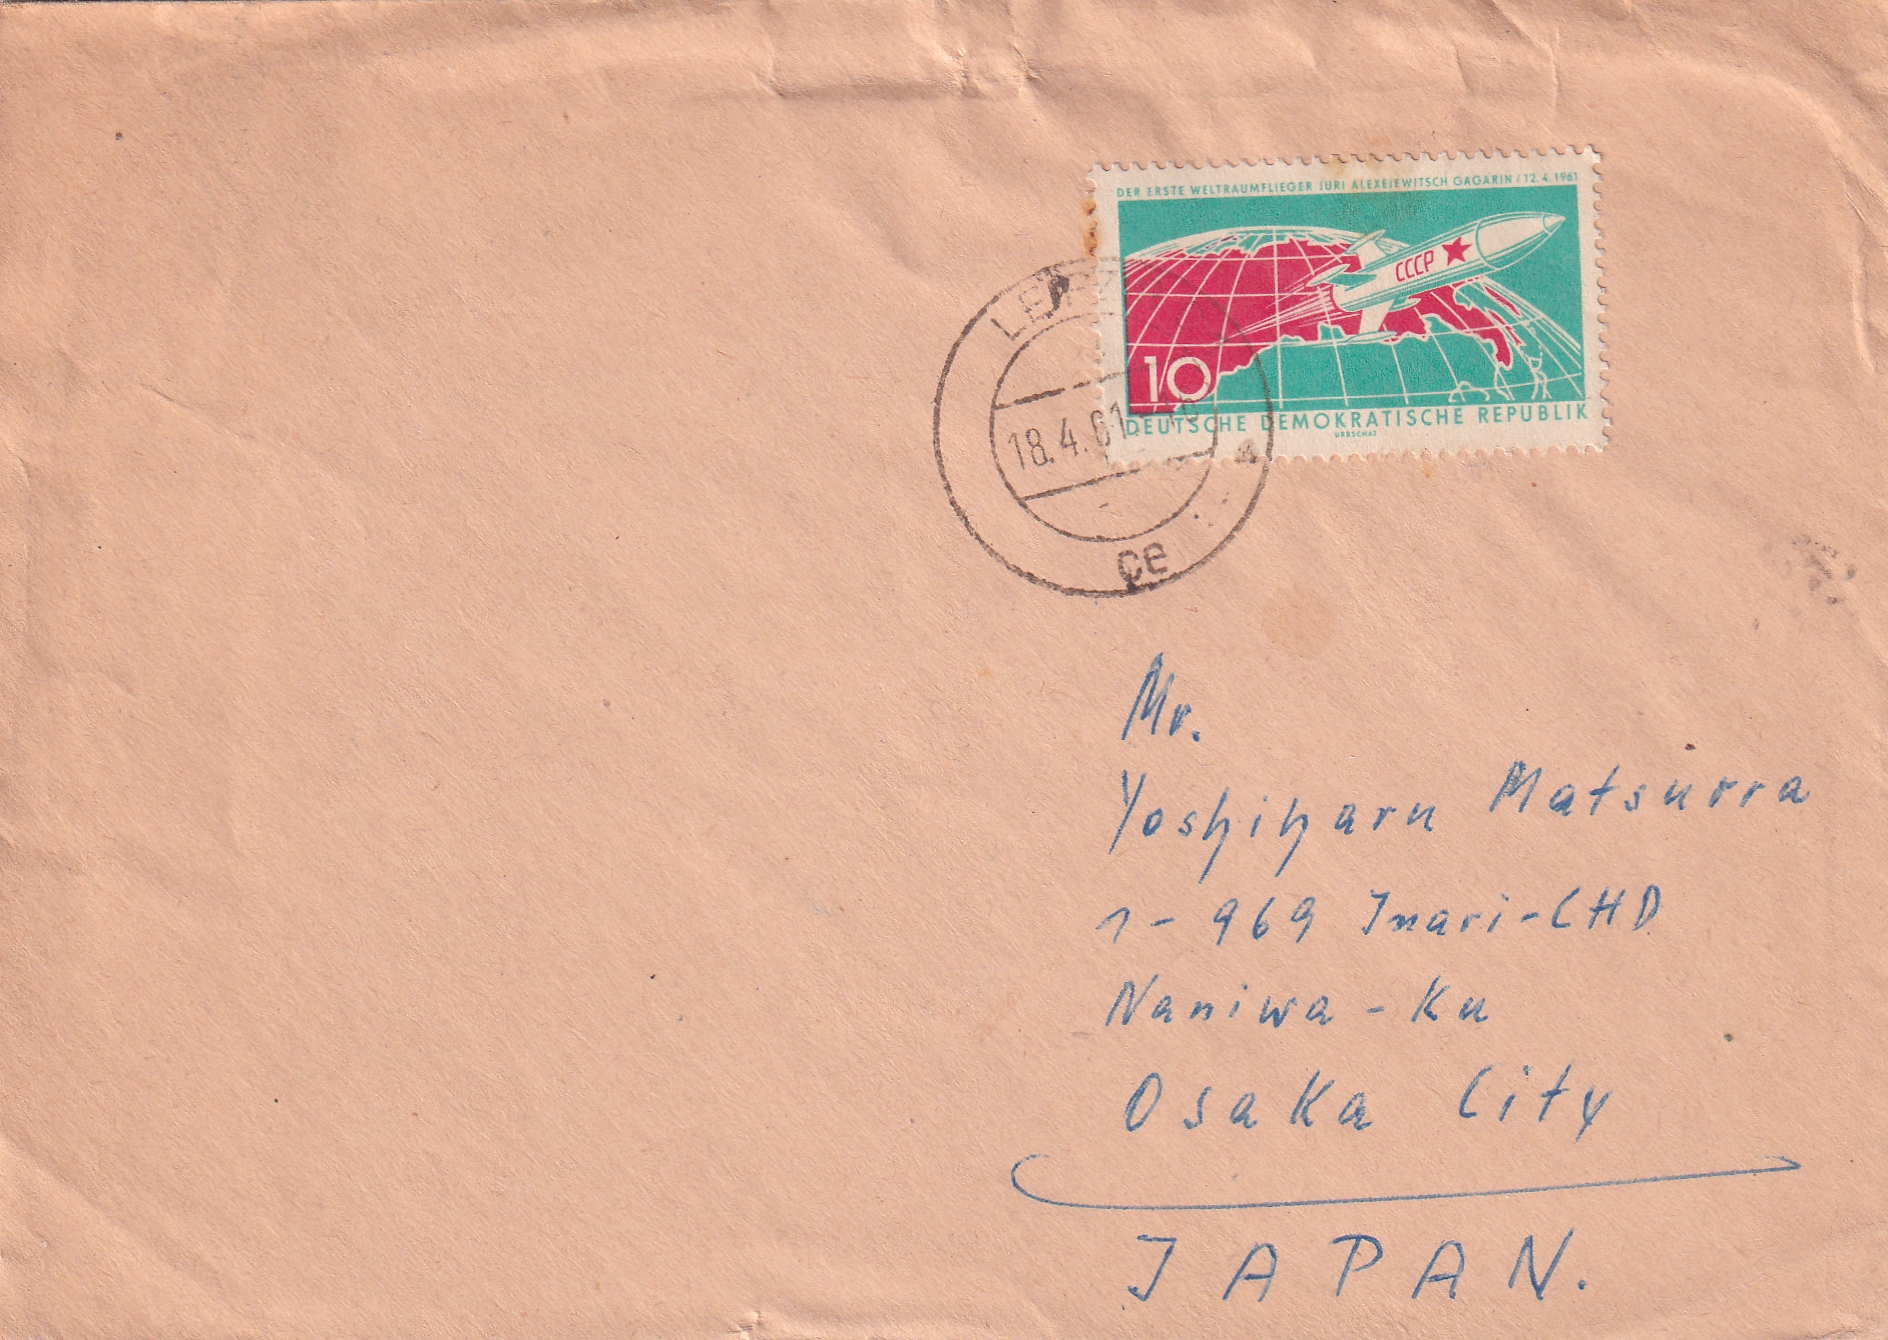 DER ERSTE WELTRAUMFLIEGER JURI ALEXEJEWITSCH GAGARIN / 12.4.1961
CCCP
10
DEUTSCHE DEMOKRATISCHE REPUBLIK
URBSCHAT
18.4.61
ce
Mr.
Yoshiharu Matsurra
1-969 Inari-CHO
Naniwa-Ku
Osaka City
JAPAN.